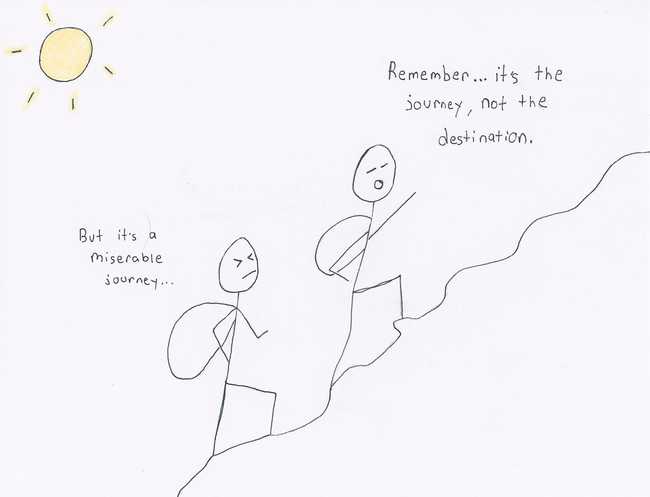 Remember... its the
journey, not the
destination.
But it's a
miserable
journey...